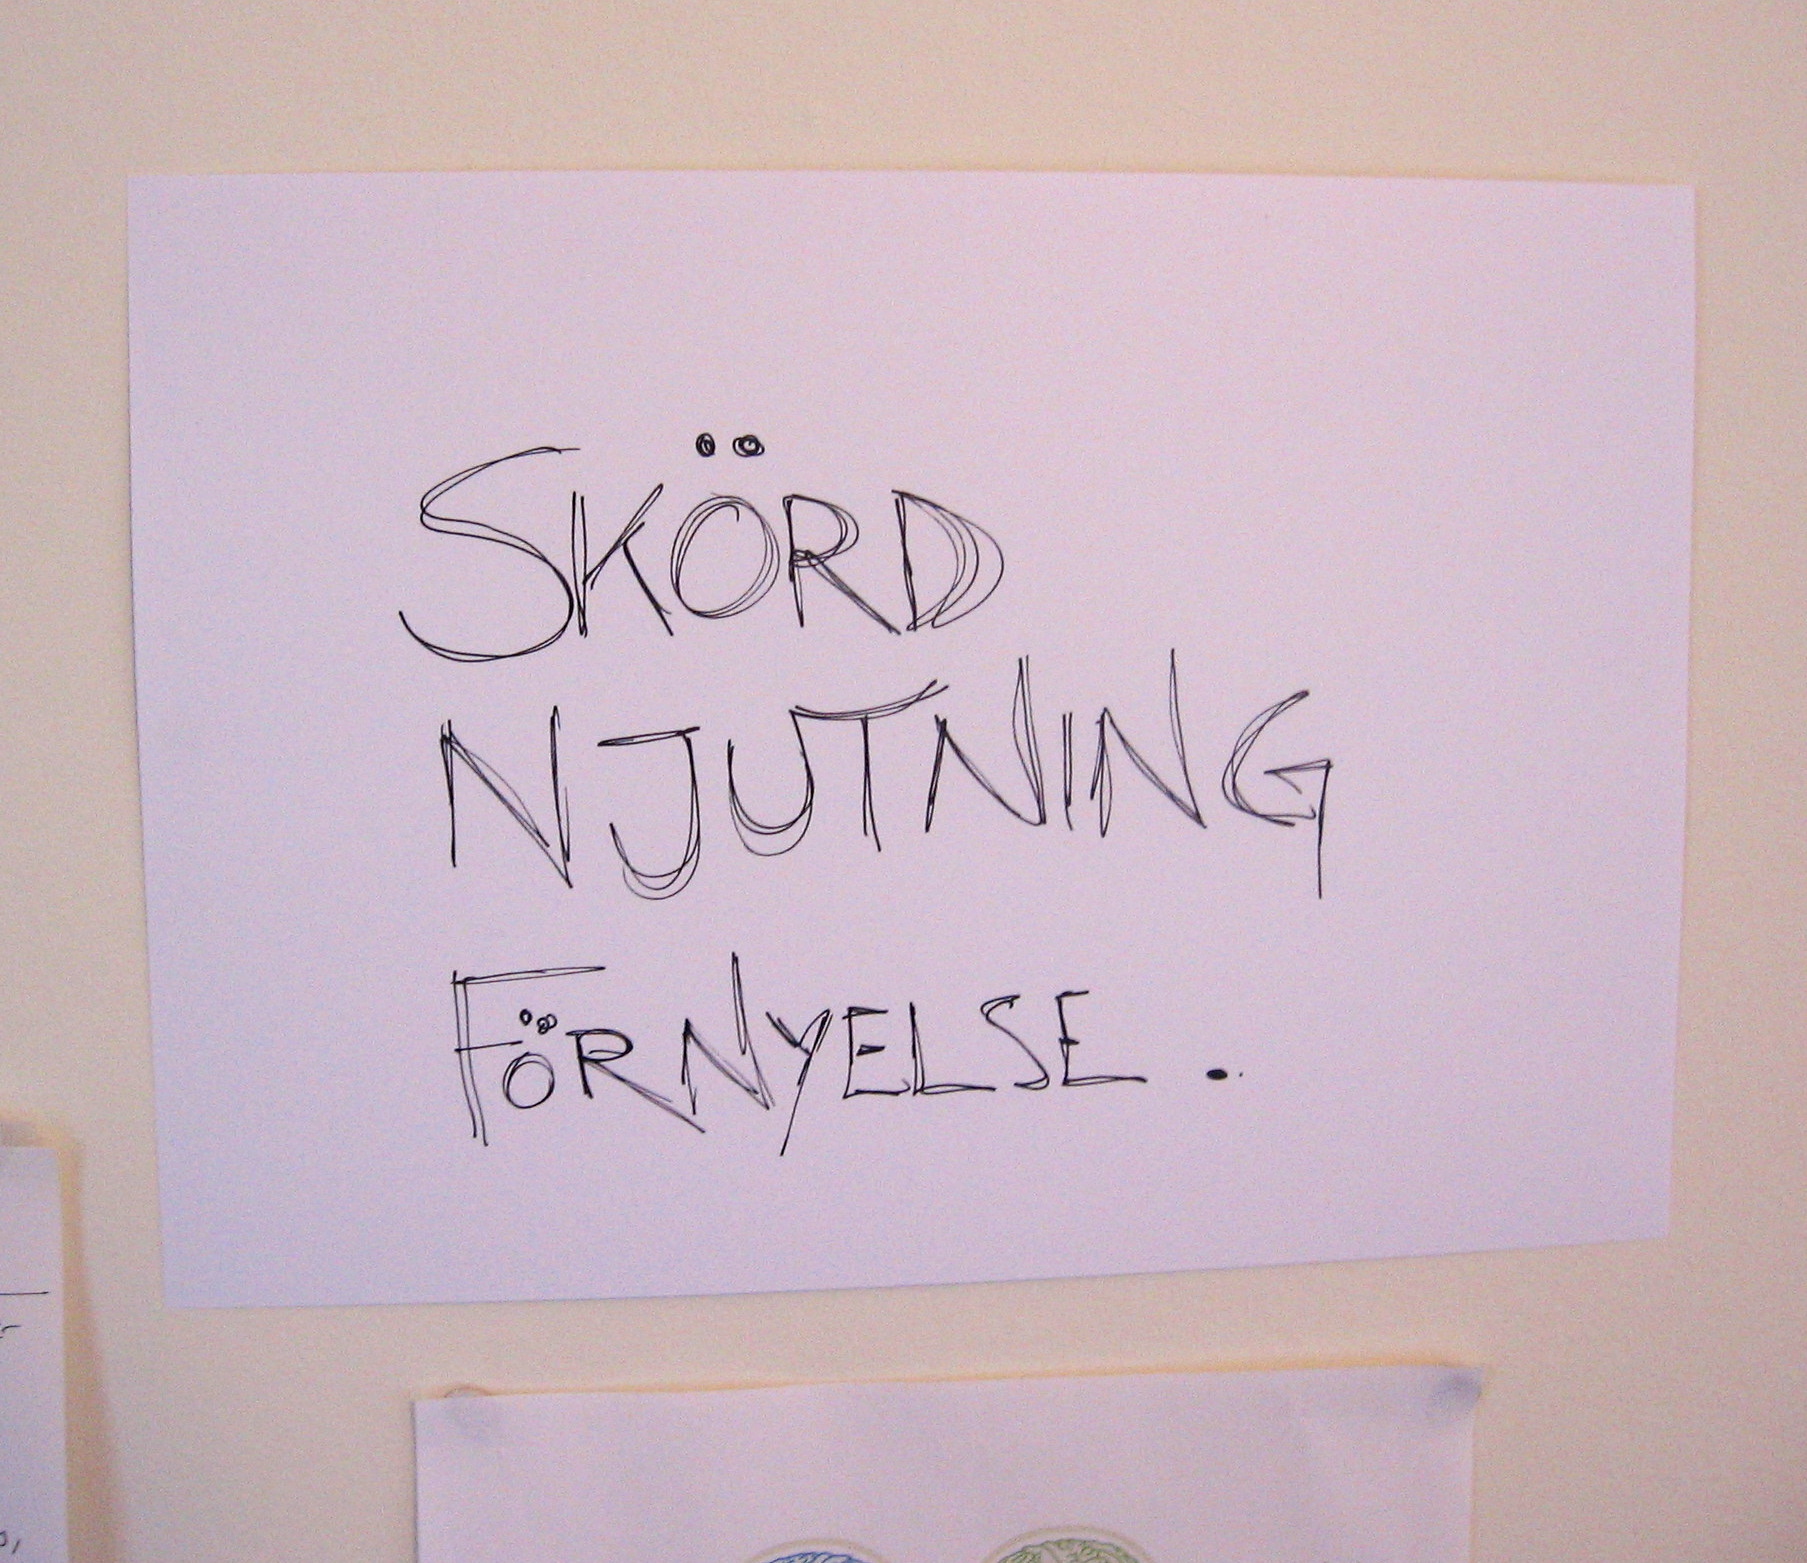 SKÖRD
NJUTNING
FÖRNYELSE.